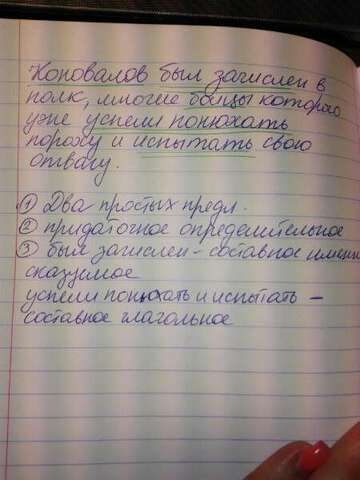 Коновалов был зачислен в
полк, многие бойцы которого
уже успели понюхать
пороху и испытать свою
отвагу.
① Два простых предл.
② придаточное определительное
③ был зачислен - составное имен
сказуемое
успели понюхать и испытать -
составное глагольное